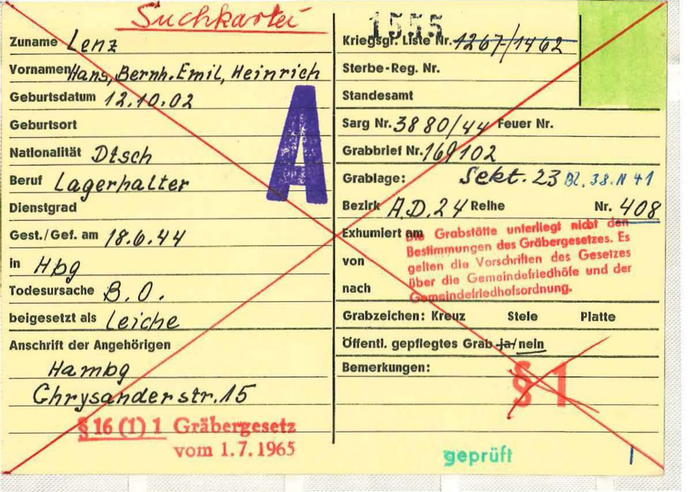 Suchkartei
Zuname Lenz
Vornamen Hans, Bernh. Emil, Heinrich
Geburtsdatum 12.10.02
Geburtsort
Nationalität Dtsch
Beruf Lagerhalter
Dienstgrad
Gest./Gef. am 18.6.44
in Hbg
Todesursache B.O.
beigesetzt als Leiche
Anschrift der Angehörigen
Hambg
Chrysanderstr. 15
§ 16 (1) 1 Gräbergesetz
vom 1.7.1965
A
1555
Kriegsgr. Liste Nr. 1267/1462
Sterbe-Reg. Nr.
Standesamt
Sarg Nr. 3880/44 Feuer Nr.
Grabbrief Nr. 169102
Grablage: Sekt. 23 Bl. 38. N 41
Bezirk A.D. 24 Reihe Nr. 408
Exhumiert am
von
nach
Die Grabstätte unterliegt nicht den
Bestimmungen des Gräbergesetzes. Es
gelten die Vorschriften des Gesetzes
über die Gemeindefriedhöfe und der
Gemeindefriedhofsordnung.
Grabzeichen: Kreuz Stele Platte
Öffentl. gepflegtes Grab ja/nein
Bemerkungen:
§ 1
geprüft